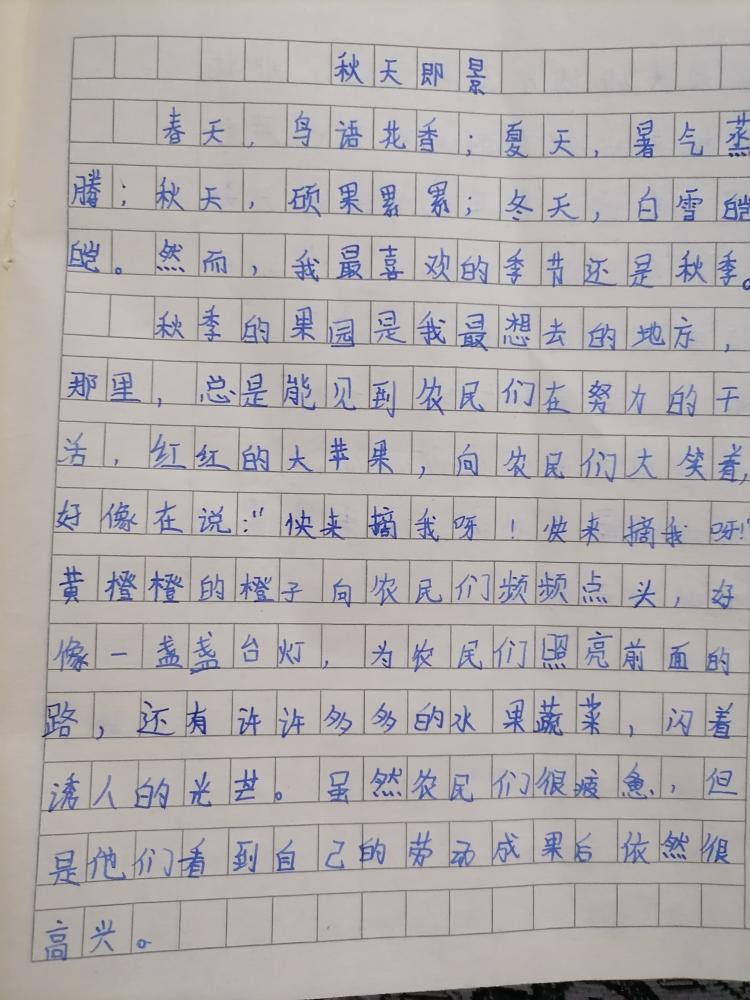 秋天即景
春天，鸟语花香；夏天，暑气蒸
腾；秋天，硕果累累；冬天，白雪皑
皑。然而，我最喜欢的季节还是秋季。
秋季的果园是我最想去的地方，
那里，总是能见到农民们在努力的干
活，红红的大苹果，向农民们大笑着，
好像在说：“快来摘我呀！快来摘我呀！”
黄橙橙的橙子向农民们频频点头，好
像一盏盏台灯，为农民们照亮前面的
路，还有许许多多的水果蔬菜，闪着
诱人的光芒。虽然农民们很疲惫，但
是他们看到自己的劳动成果后依然很
高兴。